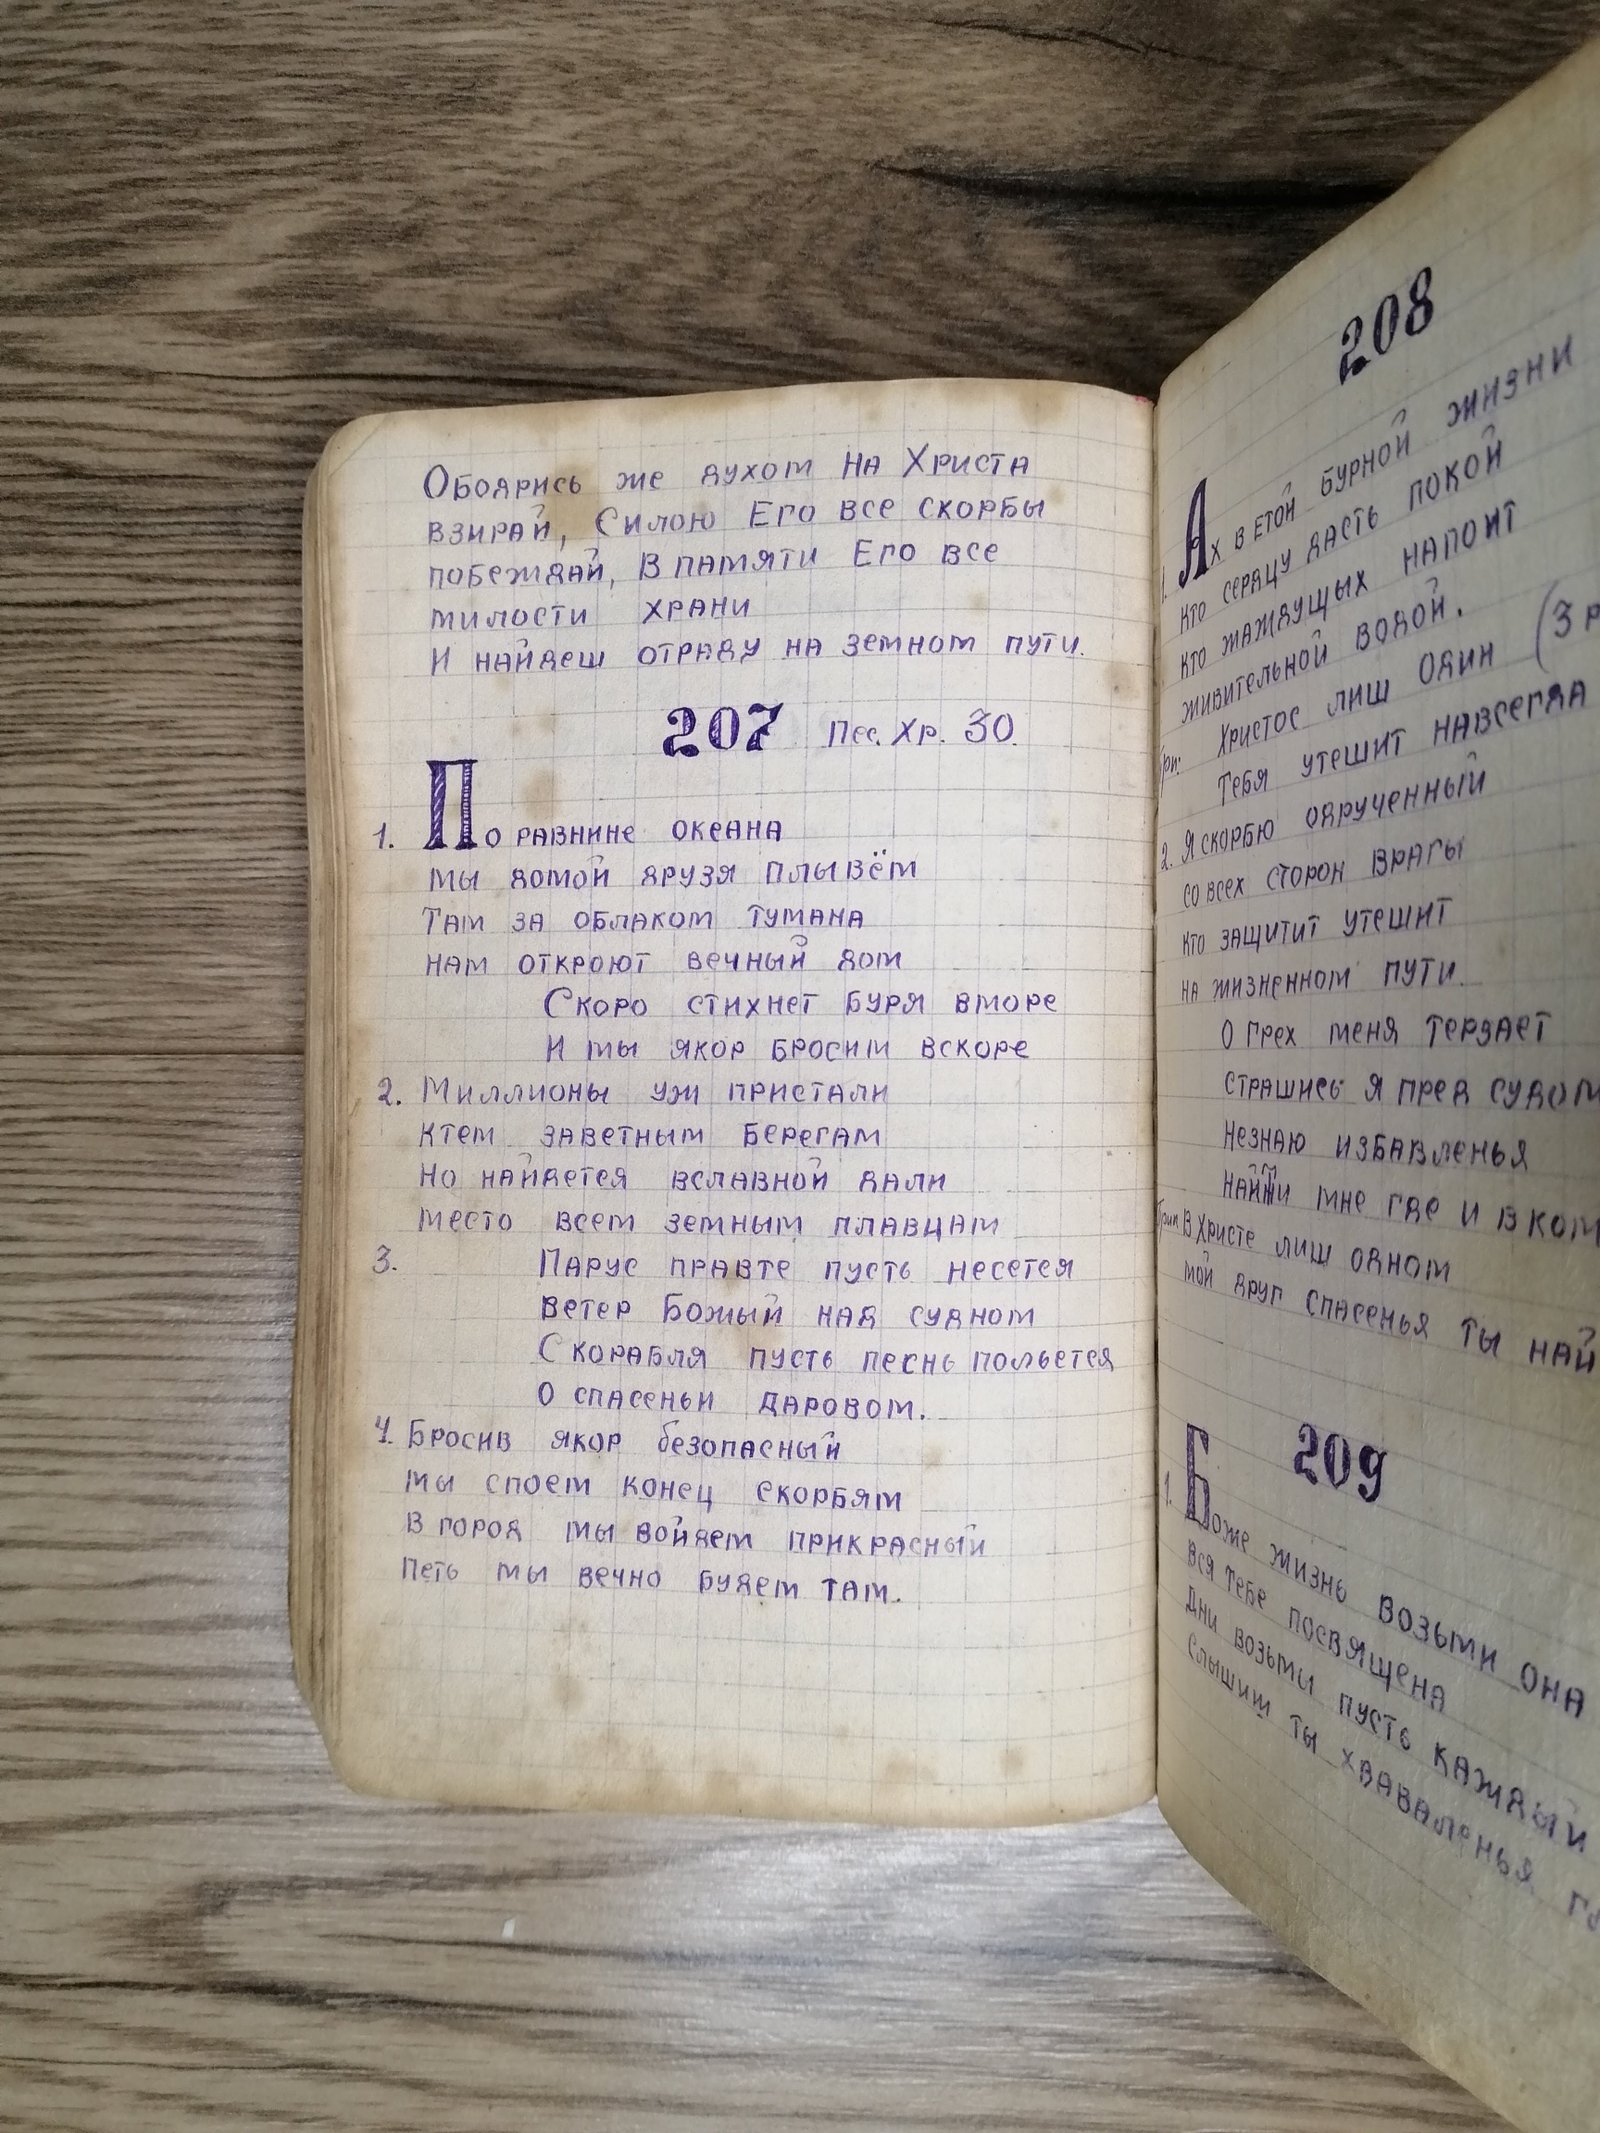 Ободрись же духом на Христа
взирай, Силою Его все скорбы
побеждай, В памяти Его все
милости храни
И найдеш отраду на земном пути.
207 Пес. Хр. 30.
1. По равнине океана
мы домой друзя плывём
Там за облаком тумана
нам откроют вечный дом
Скоро стихнет буря вморе
И мы якор бросим вскоре
2. Миллионы уж пристали
ктем заветным берегам
Но найдется вславной дали
место всем земным плавцам
3. Парус правте пусть несется
ветер Божый над судном
Скорабля пусть песнь польется
О спасеньи даровом.
4. Бросив якор безопасный
мы споем конец скорбям
В город мы войдем прикрасный
Петь мы вечно будем там.
208
1. Ах в етой бурной жизни
кто сердцу дасть покой
кто жаждущых напоит
живительной водой.
Христос лиш один (3 р
При: Тебя утешит навсегда
2. Я скорбю одрученный
со всех сторон врагы
кто защитит утешит
на жизненном пути.
О грех меня терзает
страшись я пред судом
Незнаю избавленья
найти мне где и в ком
Прип В Христе лиш одном
мой друг спасенья ты най
209
1. Боже жизнь возьми она
вся тебе посвящена
Дни возьми пусть каждый
слышиш ты хваваленья